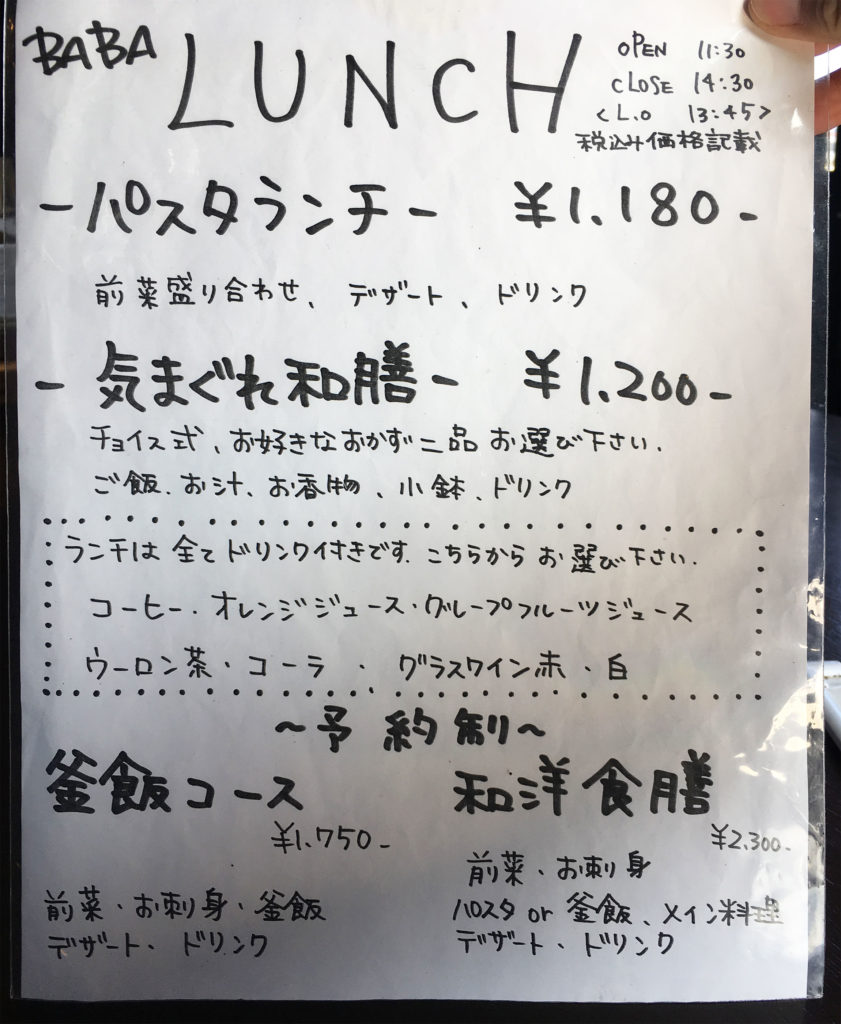 BABA LUNCH
OPEN 11:30
CLOSE 14:30
<L.O 13:45>
税込み価格記載
-パスタランチ- ¥1.180-
前菜盛り合わせ、デザート、ドリンク
-気まぐれ和膳- ¥1.200-
チョイス式、お好きなおかず二品お選び下さい.
ご飯.お汁、お香物、小鉢、ドリンク
ランチは全てドリンク付きです.こちらからお選び下さい.
コーヒー・オレンジジュース・グレープフルーツジュース
ウーロン茶・コーラ・グラスワイン赤・白
~予約制~
釜飯コース
¥1.750-
前菜・お刺り身・釜飯
デザート・ドリンク
和洋食膳
¥2.300-
前菜・お刺り身
パスタ or 釜飯、メイン料理
デザート・ドリンク